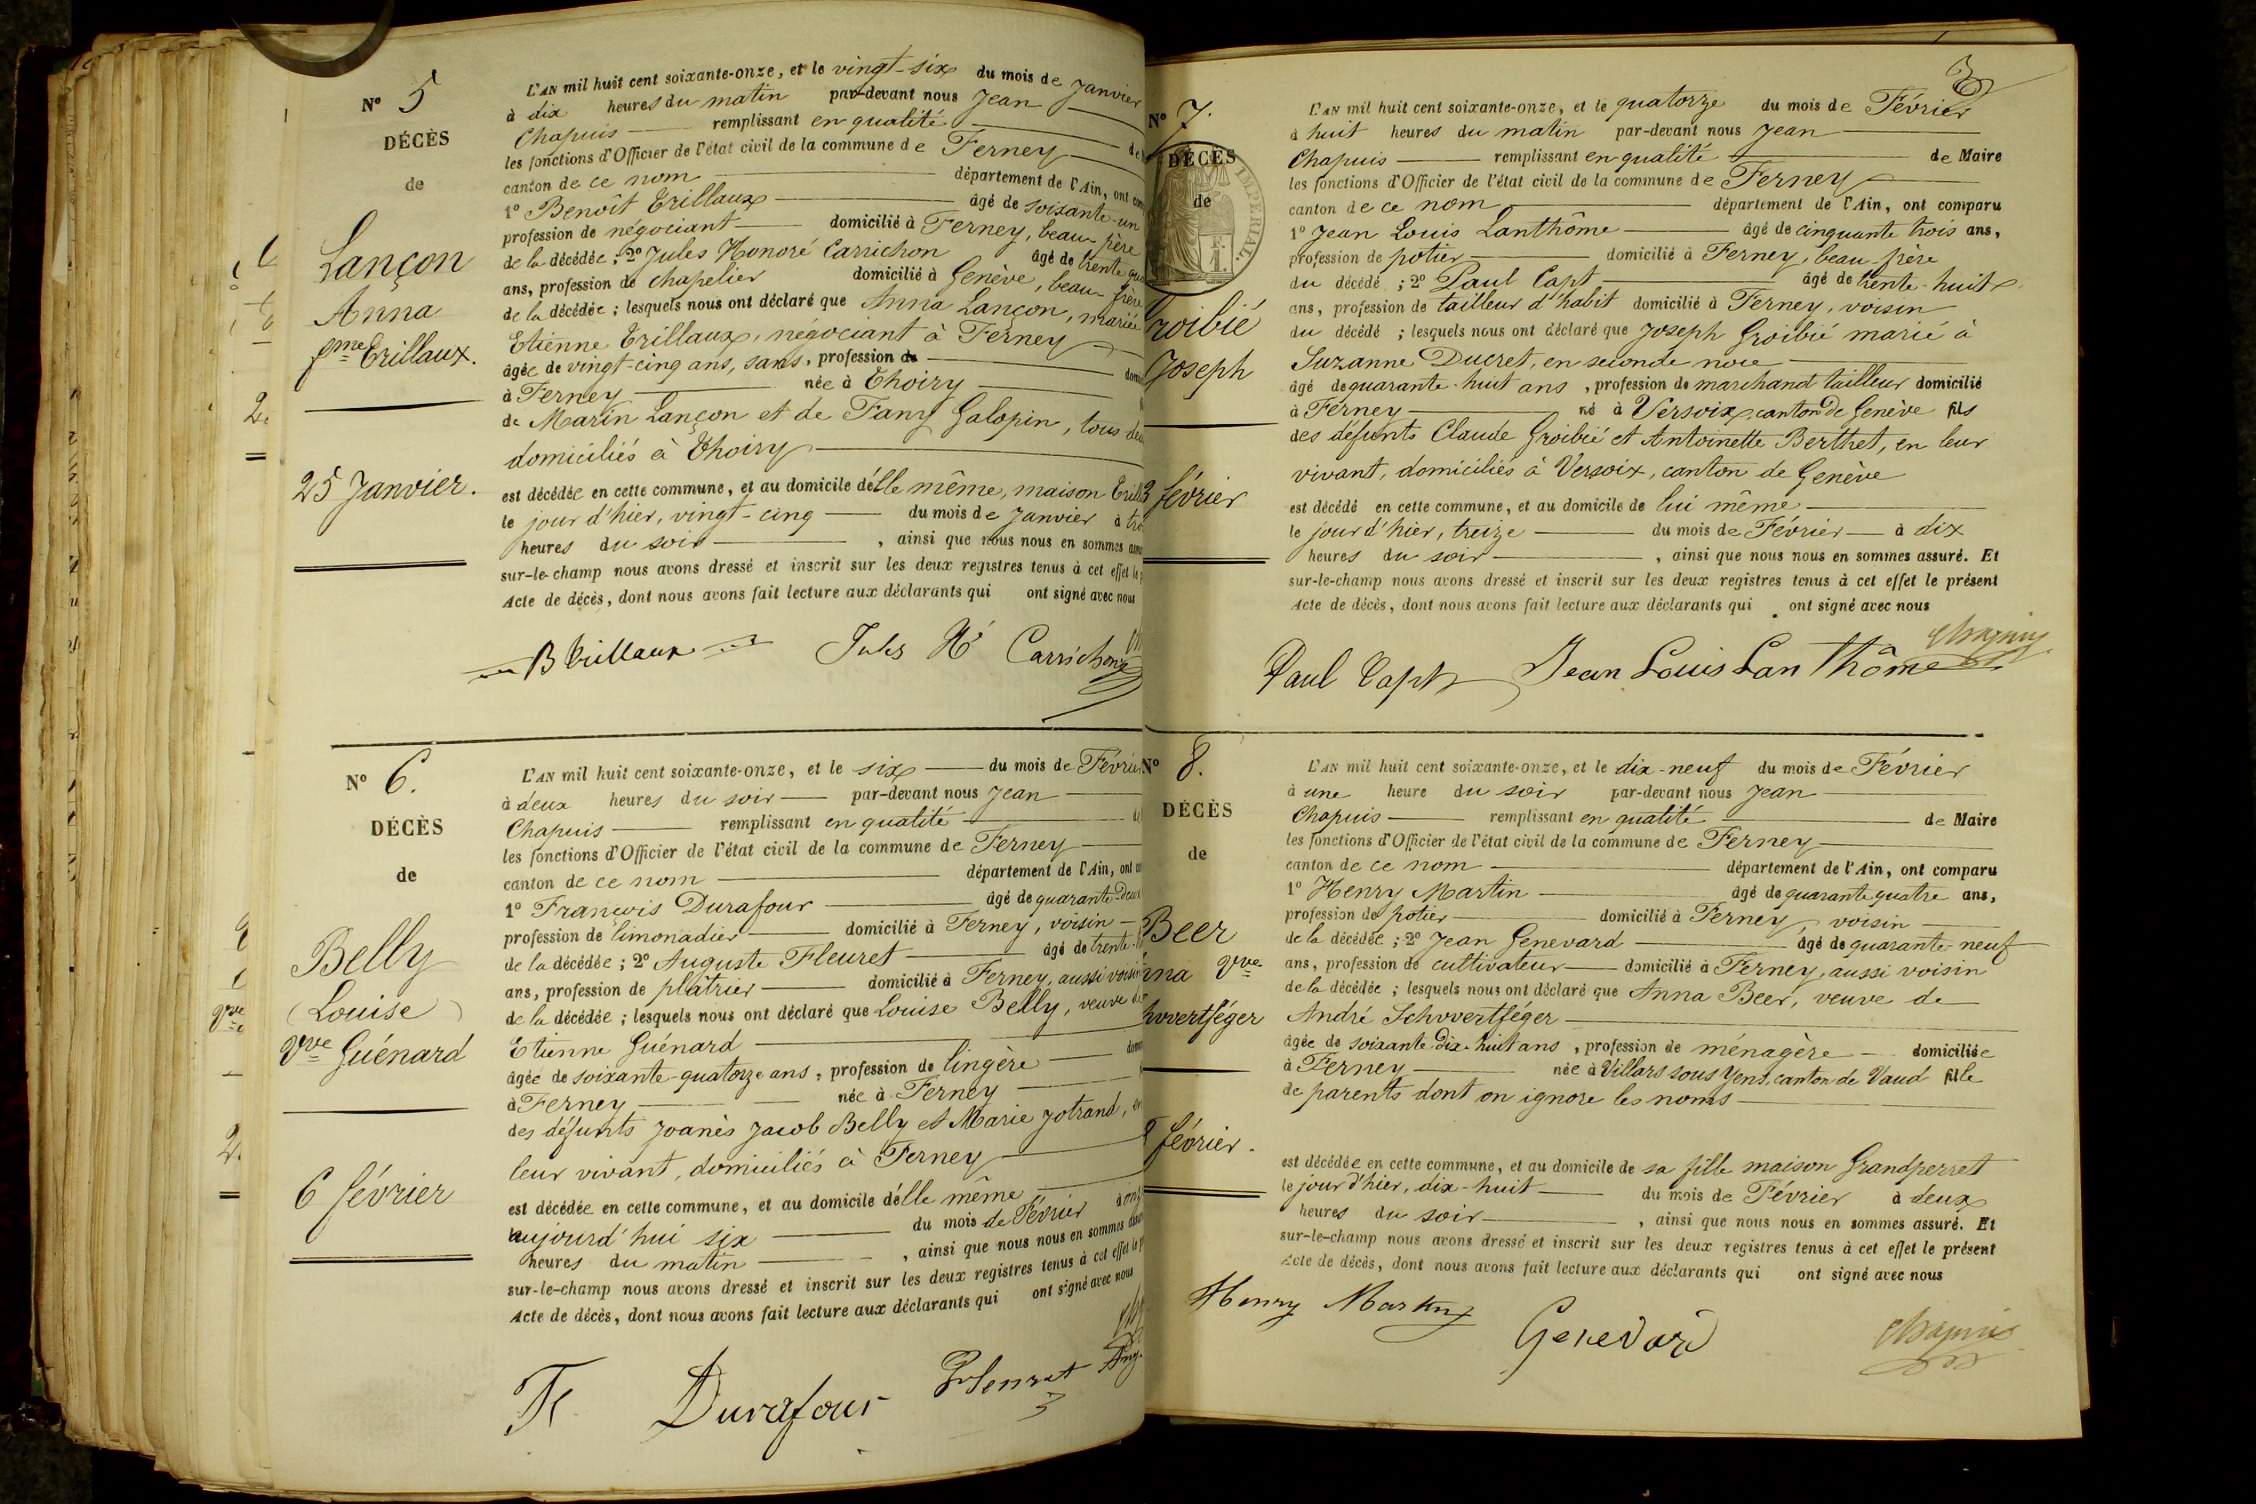 N° 5
DÉCÈS
de
Lançon
Anna
fme Trillaux.
25 Janvier.
L'AN mil huit cent soixante-onze, et le vingt-six du mois de Janvier
à dix heures du matin par-devant nous Jean
Chapuis remplissant en qualité de
les fonctions d'Officier de l'état civil de la commune de Ferney
canton de ce nom département de l'Ain, ont
1° Benoît Trillaux âgé de soixante-un
profession de négociant domicilié à Ferney, beau-père
de la décédée ; 2° Jules Honoré Carrichon âgé de trente
ans, profession de chapelier domicilié à Genève, beau-frère
de la décédée ; lesquels nous ont déclaré que Anna Lançon, mariée
Etienne Trillaux, négociant à Ferney
âgée de vingt-cinq ans, sans, profession de
à Ferney née à Thoiry
de Marin Lançon et de Fany Galopin, tous
domiciliés à Thoiry
est décédée en cette commune, et au domicile d'elle même, maison
le jour d'hier, vingt-cinq du mois de Janvier à
heures du soir , ainsi que nous nous en sommes
sur-le-champ nous avons dressé et inscrit sur les deux registres tenus à cet effet le
Acte de décès, dont nous avons fait lecture aux déclarants qui ont signé avec nous
B Trillaux Jules Hé Carrichon
N° 6.
DÉCÈS
de
Belly
(Louise)
Vve Guénard
6 février
L'AN mil huit cent soixante-onze, et le six du mois de Février
à deux heures du soir par-devant nous Jean
Chapuis remplissant en qualité
les fonctions d'Officier de l'état civil de la commune de Ferney
canton de ce nom département de l'Ain, ont
1° François Durafour âgé de quarante-deux
profession de limonadier domicilié à Ferney, voisin
de la décédée ; 2° Auguste Fleuret âgé de trente
ans, profession de plâtrier domicilié à Ferney, aussi voisin
de la décédée ; lesquels nous ont déclaré que Louise Belly, veuve de
Etienne Guénard
âgée de soixante-quatorze ans, profession de lingère
à Ferney née à Ferney
des défunts Joanès Jacob Belly et Marie Jotrand, en
leur vivant, domiciliés à Ferney
est décédée en cette commune, et au domicile d'elle même
aujourd'hui six du mois de Février à
heures du matin , ainsi que nous nous en sommes
sur-le-champ nous avons dressé et inscrit sur les deux registres tenus à cet effet le
Acte de décès, dont nous avons fait lecture aux déclarants qui ont signé avec nous
Durafour Fleuret
3
N° 7.
DÉCÈS
de
IMPERIAL
roibié
Joseph
3 février
L'AN mil huit cent soixante-onze, et le quatorze du mois de Février
à huit heures du matin par-devant nous Jean
Chapuis remplissant en qualité de Maire
les fonctions d'Officier de l'état civil de la commune de Ferney
canton de ce nom département de l'Ain, ont comparu
1° Jean Louis Lanthôme âgé de cinquante trois ans,
profession de potier domicilié à Ferney, beau-frère
du décédé ; 2° Paul Capt âgé de trente-huit
ans, profession de tailleur d'habit domicilié à Ferney, voisin
du décédé ; lesquels nous ont déclaré que Joseph Groibié marié à
Suzanne Ducret, en seconde noce
âgé de quarante-huit ans, profession de marchand tailleur domicilié
à Ferney né à Versoix, canton de Genève fils
des défunts Claude Groibié et Antoinette Berthet, en leur
vivant, domiciliés à Versoix, canton de Genève
est décédé en cette commune, et au domicile de lui même
le jour d'hier, treize du mois de Février à dix
heures du soir , ainsi que nous nous en sommes assuré. Et
sur-le-champ nous avons dressé et inscrit sur les deux registres tenus à cet effet le présent
Acte de décès, dont nous avons fait lecture aux déclarants qui ont signé avec nous
Chapuis
Paul Capt Jean Louis Lanthôme
N° 8.
DÉCÈS
de
Beer
nna Vve
hwertféger
février.
L'AN mil huit cent soixante-onze, et le dix-neuf du mois de Février
à une heure du soir par-devant nous Jean
Chapuis remplissant en qualité de Maire
les fonctions d'Officier de l'état civil de la commune de Ferney
canton de ce nom département de l'Ain, ont comparu
1° Henry Martin âgé de quarante quatre ans,
profession de potier domicilié à Ferney, voisin
de la décédée ; 2° Jean Genevard âgé de quarante-neuf
ans, profession de cultivateur domicilié à Ferney, aussi voisin
de la décédée ; lesquels nous ont déclaré que Anna Beer, veuve de
André Schwertféger
âgée de soixante-dix-huit ans, profession de ménagère domiciliée
à Ferney née à Villars sous Yens, canton de Vaud fille
de parents dont on ignore les noms
est décédée en cette commune, et au domicile de sa fille maison Grandperret
le jour d'hier, dix-huit du mois de Février à deux
heures du soir , ainsi que nous nous en sommes assuré. Et
sur-le-champ nous avons dressé et inscrit sur les deux registres tenus à cet effet le présent
Acte de décès, dont nous avons fait lecture aux déclarants qui ont signé avec nous
Henry Martin Genevard Chapuis